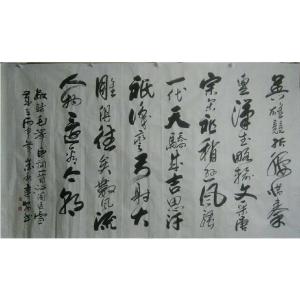 英雄競折腰惜秦
皇漢武略輸文采唐
宗宋祖稍遜風騷
一代天驕成吉思汗
祇識彎弓射大
雕俱往矣數風流
人物還看今朝
毛澤東詞沁園春雪